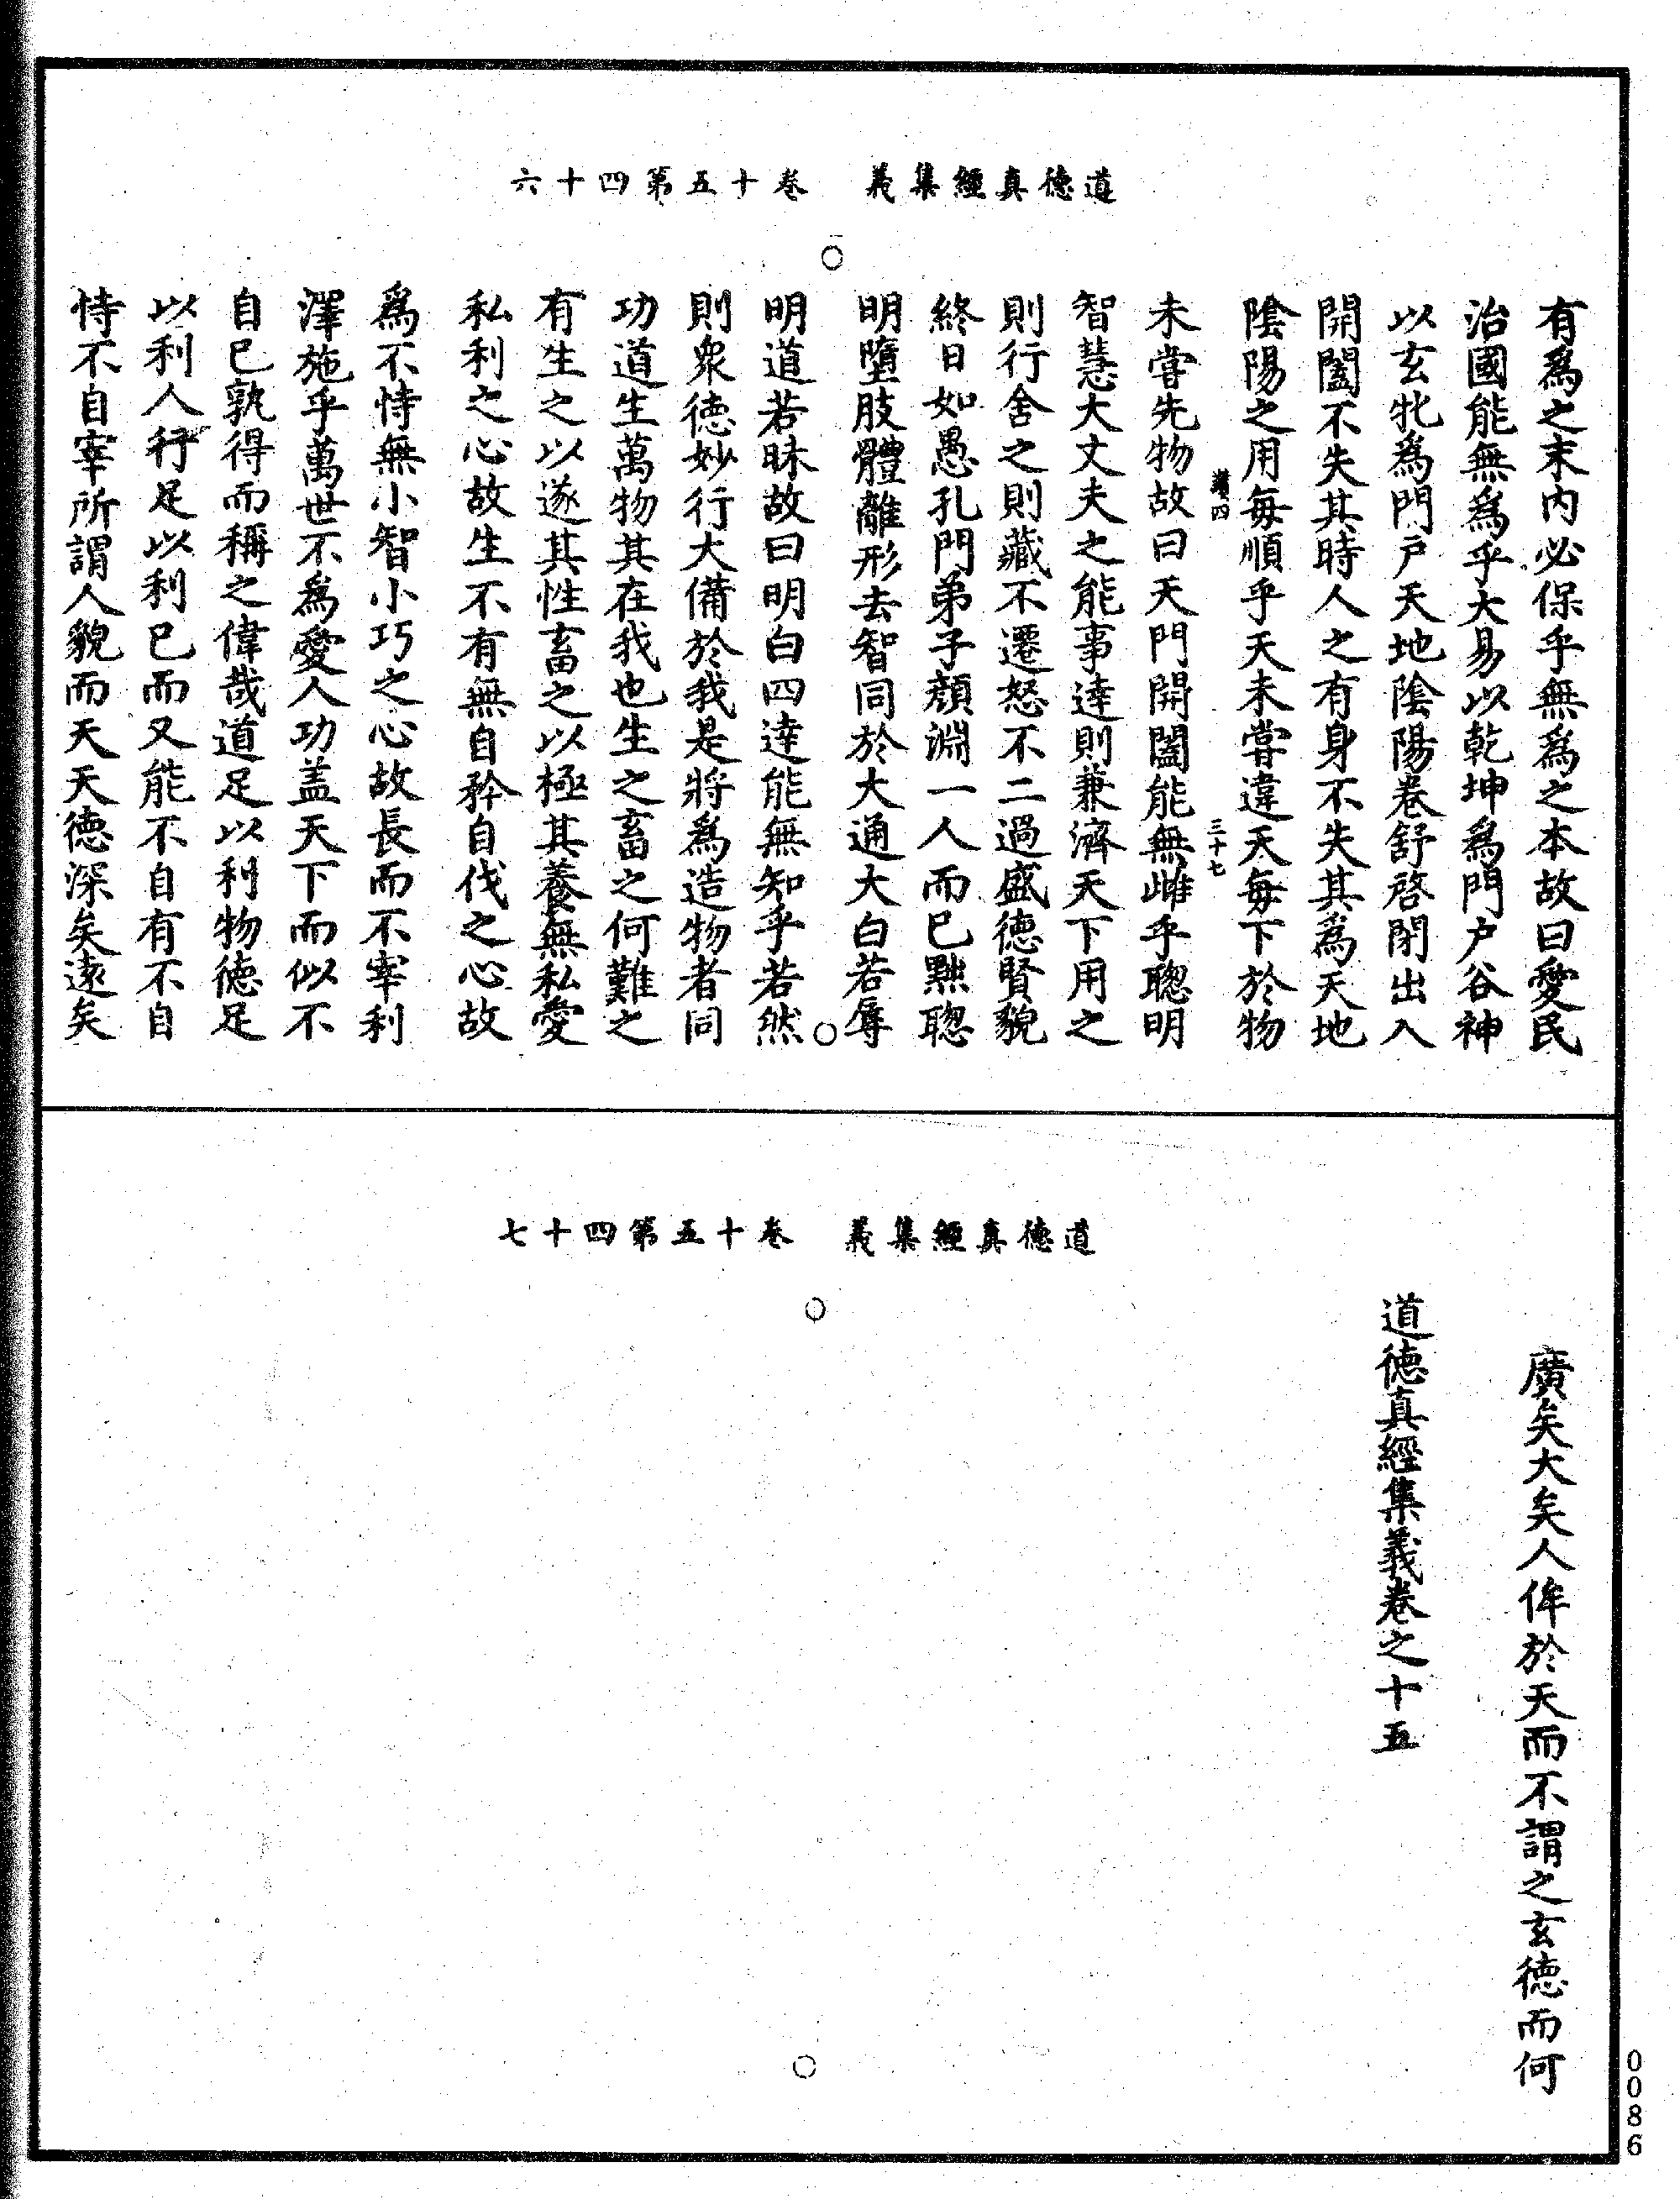 道德真經集義　卷十五第四十六
有爲之末内必保乎無爲之本故曰愛民
治國能無爲乎大易以乾坤爲門户谷神
以玄牝爲門户天地陰陽卷舒啓閉出入
開闔不失其時人之有身不失其爲天地
陰陽之用每順乎天未嘗違天每下於物
三十七
未嘗先物故曰天門開闔能無雌乎聰明
智慧大丈夫之能事達則兼濟天下用之
則行舍之則藏不遷怒不二過盛德賢貌
終日如愚孔門弟子顏淵一人而已黜聰
明墮肢體離形去智同於大通大白若辱
明道若昧故曰明白四達能無知乎若然
則衆德妙行大備於我是將爲造物者同
功道生萬物其在我也生之畜之何難之
有生之以遂其性畜之以極其養無私愛
私利之心故生不有無自矜自伐之心故
爲不恃無小智小巧之心故長而不宰利
澤施乎萬世不爲愛人功盖天下而似不
自已孰得而稱之偉哉道足以利物德足
以利人行足以利已而又能不自有不自
恃不自宰所謂人貌而天天德深矣遠矣
道德真經集義　卷十五第四十七
廣矣大矣人侔於天而不謂之玄德而何
道德真經集義卷之十五
0086